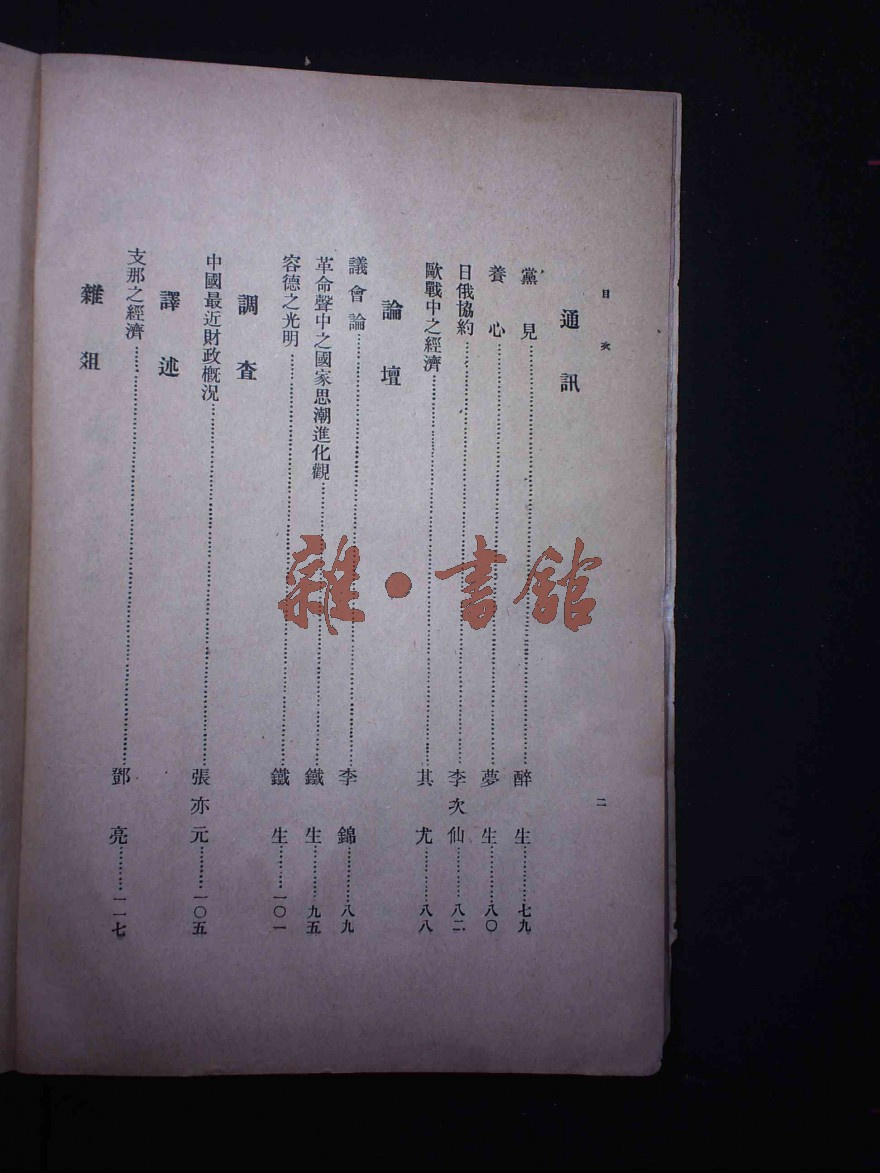 目次
二
通訊
黨見……醉生……七九
養心……夢生……八〇
日俄協約……李次仙……八二
歐戰中之經濟……其尤……八八
論壇
議會論……李錦……八九
革命聲中之國家思潮進化觀……鐵生……九五
容德之光明……鐵生……一〇一
調查
中國最近財政概況……張亦元……一〇五
譯述
支那之經濟……鄧亮……一一七
雜俎
雜·書館